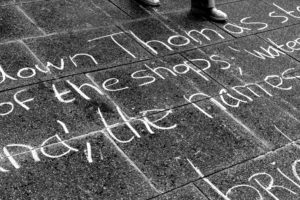 down Thomas st
of the shops, 
and, the names